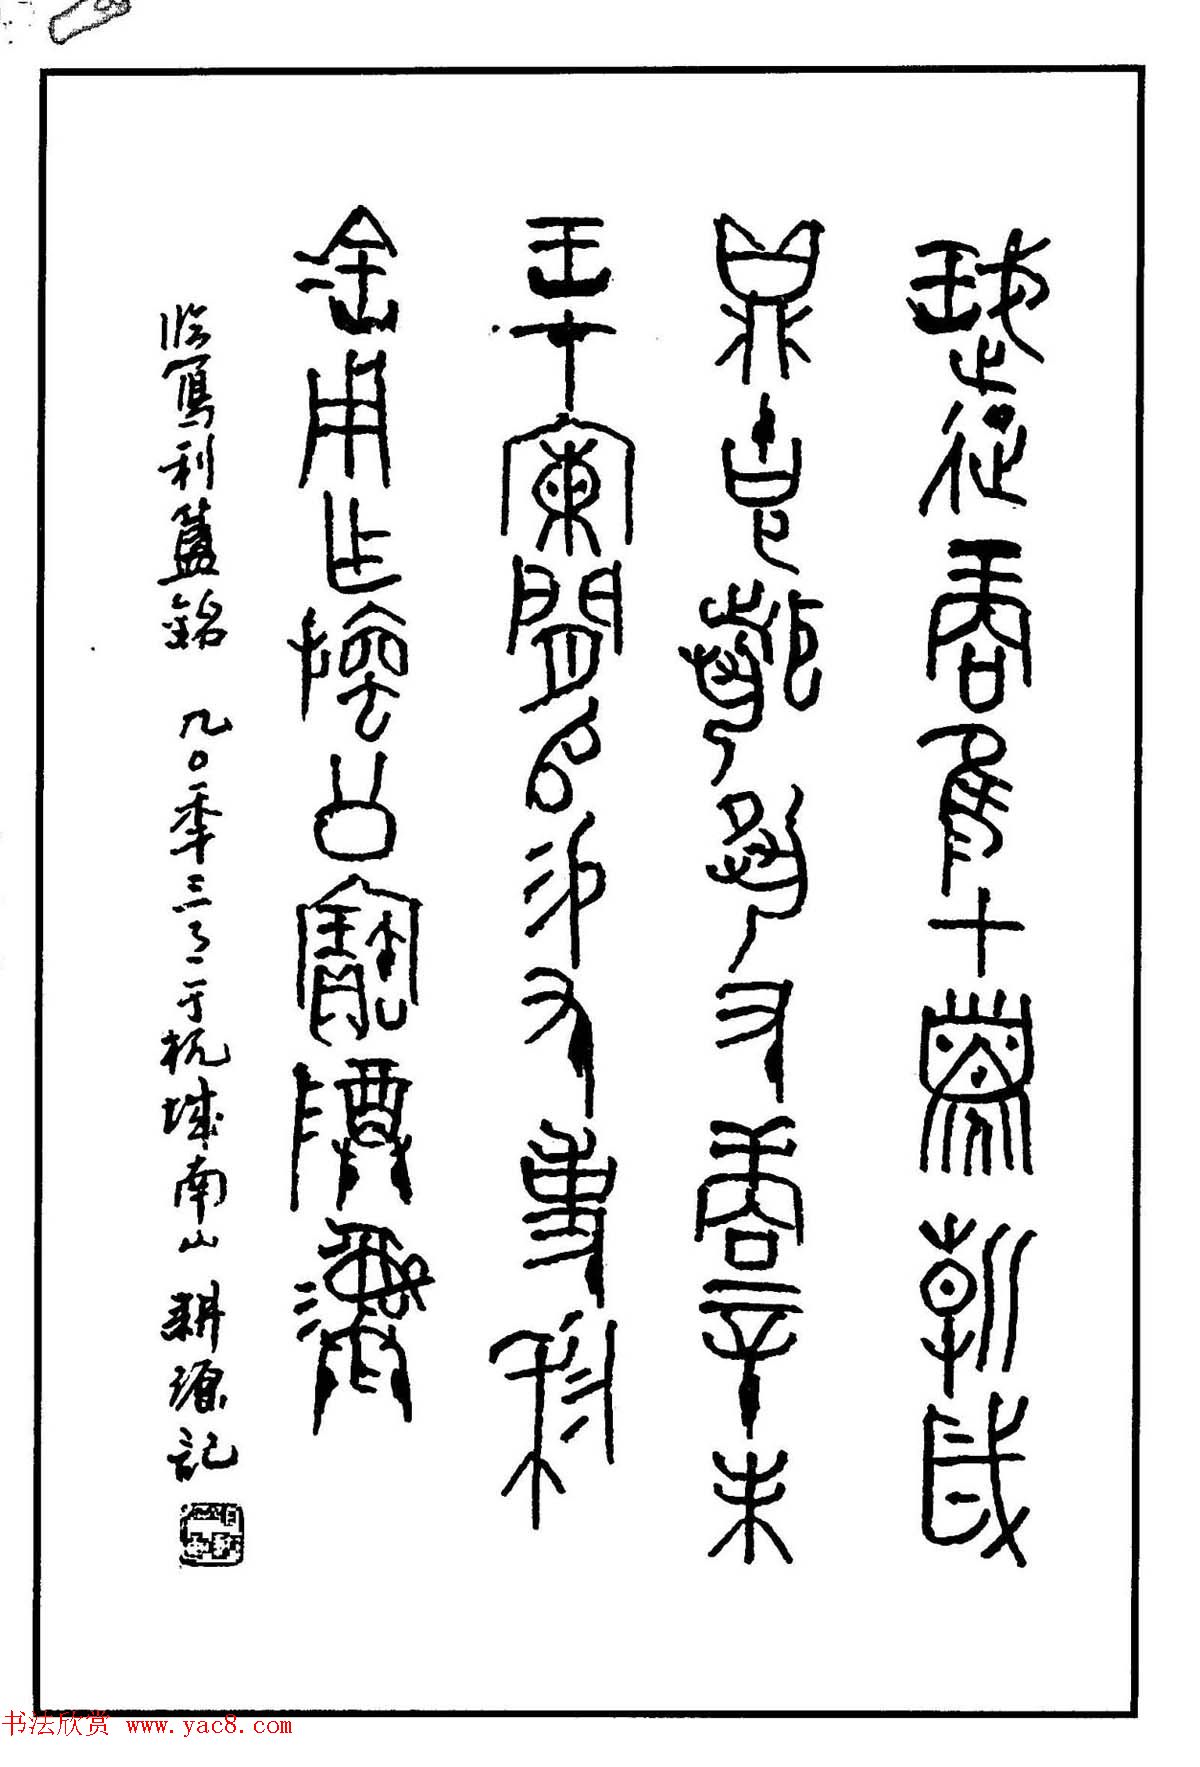 珷征商隹甲子朝歲
鼎克昏夙又商辛未
王才闌𠂤易又事利
金用乍𣄴公寶尊彝
臨寫利簋銘 九〇年三月于杭城南山 耕源記
书法欣赏 www.yac8.com